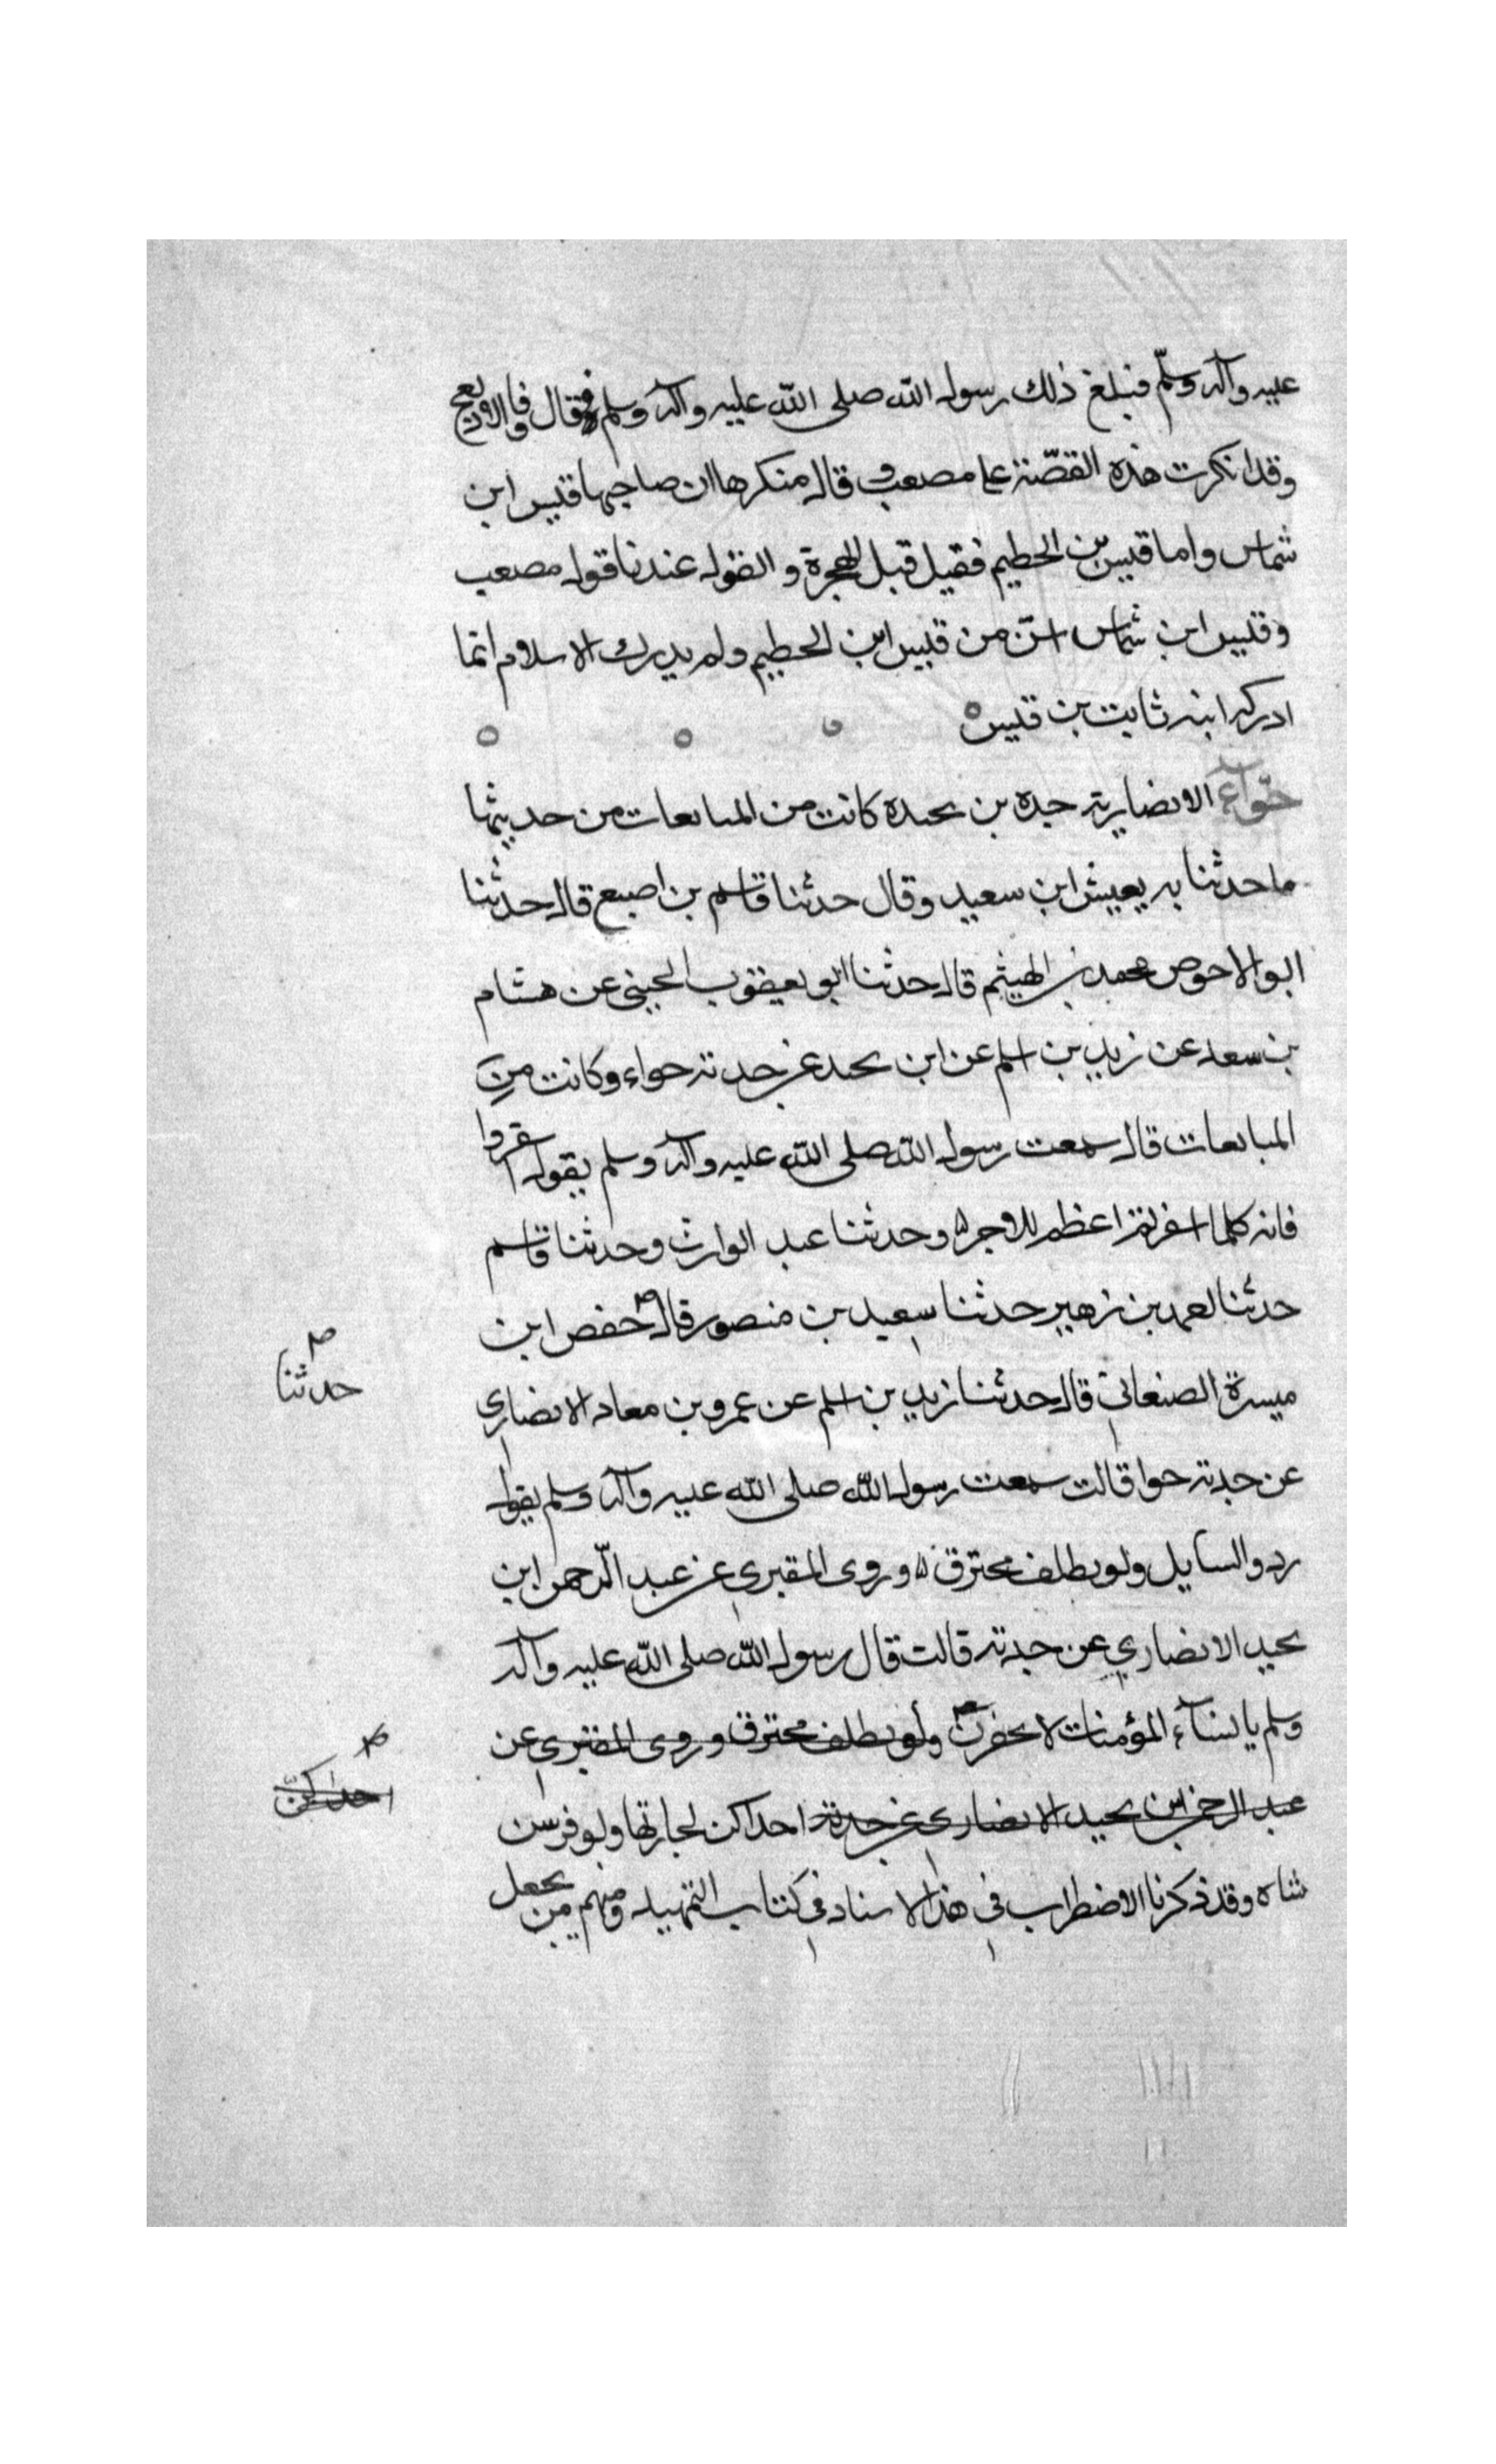 عليه وآله وسلّم فبلغ ذلك رسول الله صلى الله عليه وآله وسلم فقال وفا الاديعج
وقد انكرت هذه القصّة على مصعب وقال منكرها ان صاحبها قيس ابن
شماس واما قيس بن الخطيم فقيل قبل الهجرة والقول عندنا قول مصعب
وقيس ابن شماس اسنّ من قيس ابن الخطيم ولم يدرك الاسلام انما
ادركه ابنه ثابت بن قيس
حوّاء الانصارية جدة بن بجيدة كانت من المبايعات من حديثها
ما حدثنا به يعيش ابن سعيد وقال حدثنا قاسم بن اصبع قال حدثنا
ابو الاحوص محمد بن الهيثم قال حدثنا ابو يعقوب الحبيني عن هشام
بن سعد عن زيد بن اسلم عن ابن بجيد عن جدته حواء وكانت من
المبايعات قال سمعت رسول الله صلى الله عليه وآله وسلم يقول اسفروا
فانه كلما اسفرتم اعظم للاجر وحدثنا عبد الوارث وحدثنا قاسم
حدثنا احمد بن زهير حدثنا سعيد بن منصور قال حفص ابن
حدثنا
ميسرة الصنعاني قال حدثنا زيد بن اسلم عن عمرو بن معاد الانصاري
عن جدته حوا قالت سمعت رسول الله صلى الله عليه وآله وسلم يقول
ردوا السايل ولو بظلف محترق وروى المقبري عن عبد الرحمن ابن
بجيد الانصاري عن جدته قالت قال رسول الله صلى الله عليه وآله
وسلم يا نسآء المؤمنات لا تحقرن ولو بظلف محترق وروى المقبري عن
احداكنّ
عبد الرحمن ابن بجيد الانصاري عن جدته احداكن لجارتها ولو فرسن
شاه وقد ذكرنا الاضطراب في هذا الاسناد في كتاب التمهيد ومنهم من يجعل